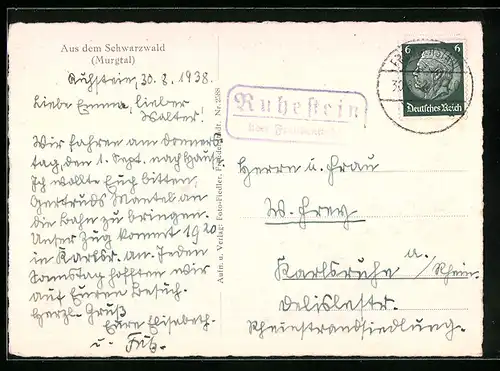 Aus dem Schwarzwald
(Murgtal)
Ruhstein, 30. 8. 1938.
Liebe Emma, lieber
Walter!
Wir fahren am Donners-
tag, den 1. Sept. nach Hause.
Ich wollte Euch bitten,
Gertruds Mantel an
die Bahn zu bringen.
Unser Zug kommt 19 20
in Karlsr. an. Jeden
Samstag hofften wir
auf Euren Besuch.
Herzl. Gruß
Eure Elisabeth
u. Fritz.
Aufn. u. Verlag: Foto-Fiedler, Freudenstadt. Nr. 2288
Ruhestein
über Freudenstadt
6 6
Deutsches Reich
30
Herrn u. Frau
W. Frey
Karlsruhe a./Rhein
Delislestr.
Rheinstrandsiedlung.